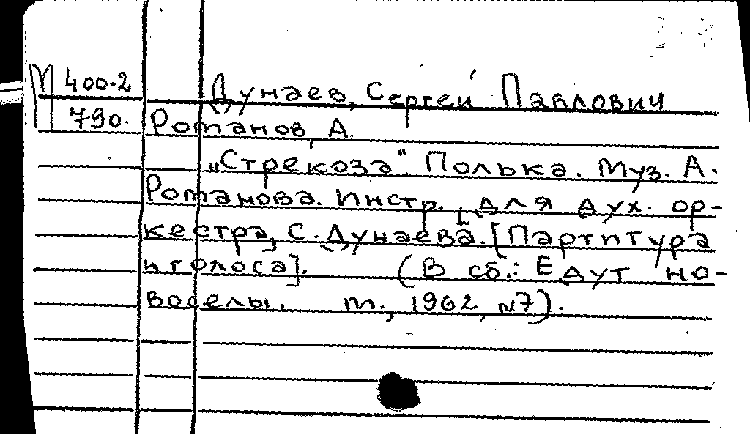 М 400-2 Дунаев, Сергей Павлович
790. Ротанов, А
„Стрекоза". Полька. Муз. А.
Ротанова. Инстр. для дух. ор-
кестра, С. Дунаева. [Партитура
и голоса]. (В сб.: Едут но-
воселы. т., 1962, №7).